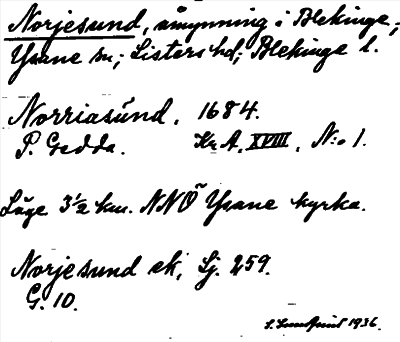 Norjesund, åmynning i Blekinge;
Ysane sn; Listers hd; Blekinge l.
Norriasund. 1684.
P. Gedda. Kr. A. XVIII. N:o 1.
Läge 3 1/2 km. NNÖ Ysane kyrka.
Norjesund ek, Sj. 259.
G. 10.
1936.